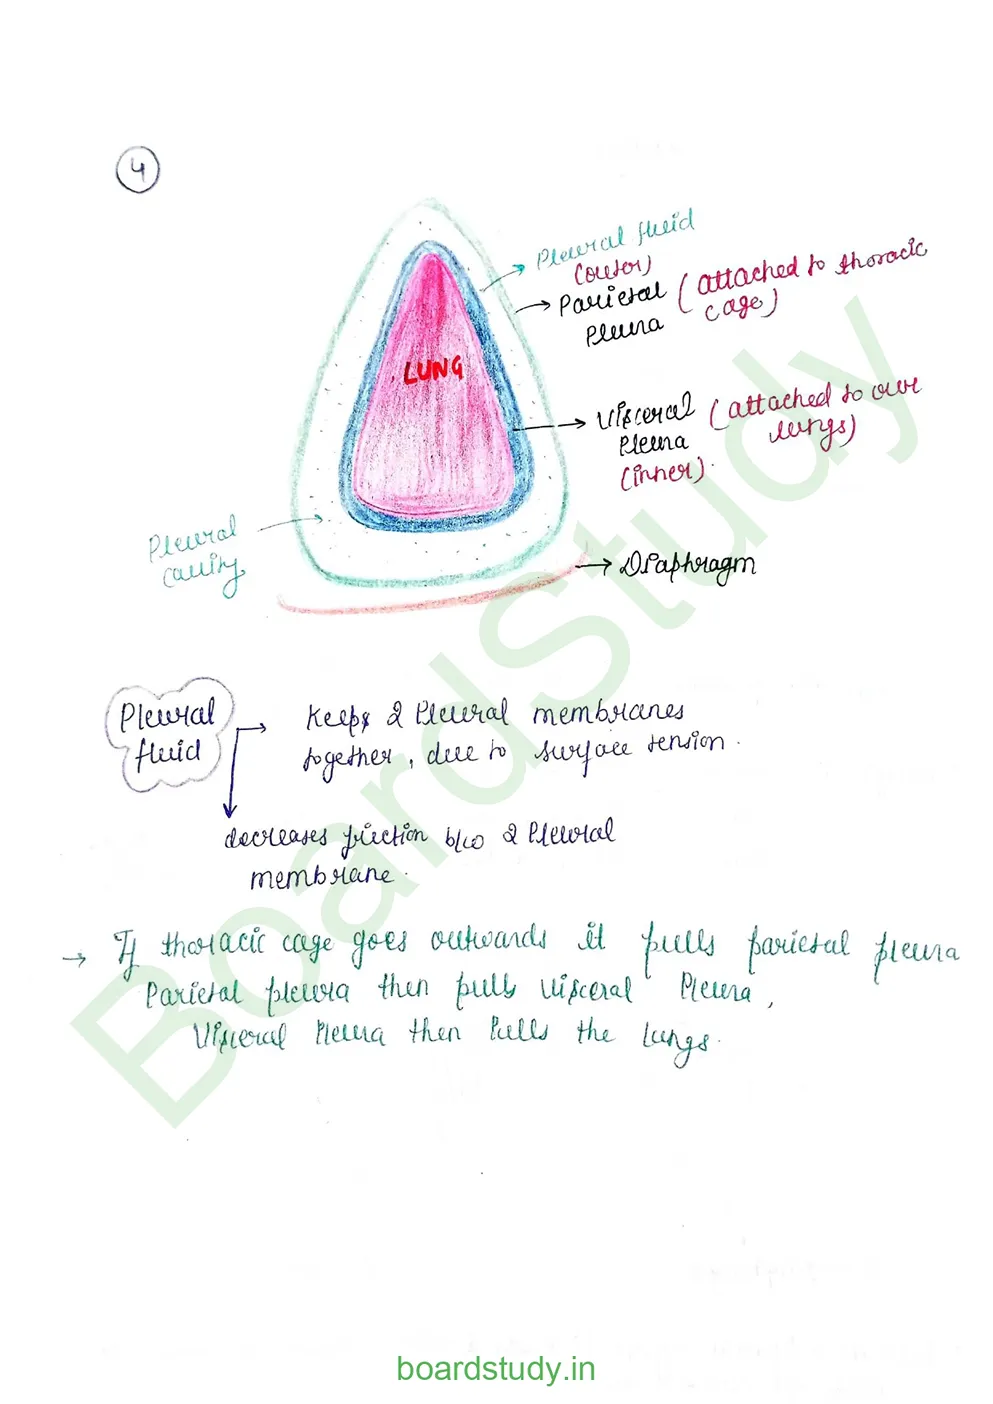 4
Pleural fluid
(outer)
Parietal (attached to thoracic
Pleura cage)
LUNG
Visceral (attached to our
Pleura lungs)
(inner).
Pleural
cavity
Diaphragm
Pleural
fluid
Keeps 2 Pleural membranes
together, due to surface tension.
decreases friction b/w 2 Pleural
membrane.
→ If thoracic cage goes outwards it pulls parietal pleura
Parietal pleura then pulls visceral Pleura,
Visceral Pleura then Pulls the lungs.
BoardStudy
boardstudy.in